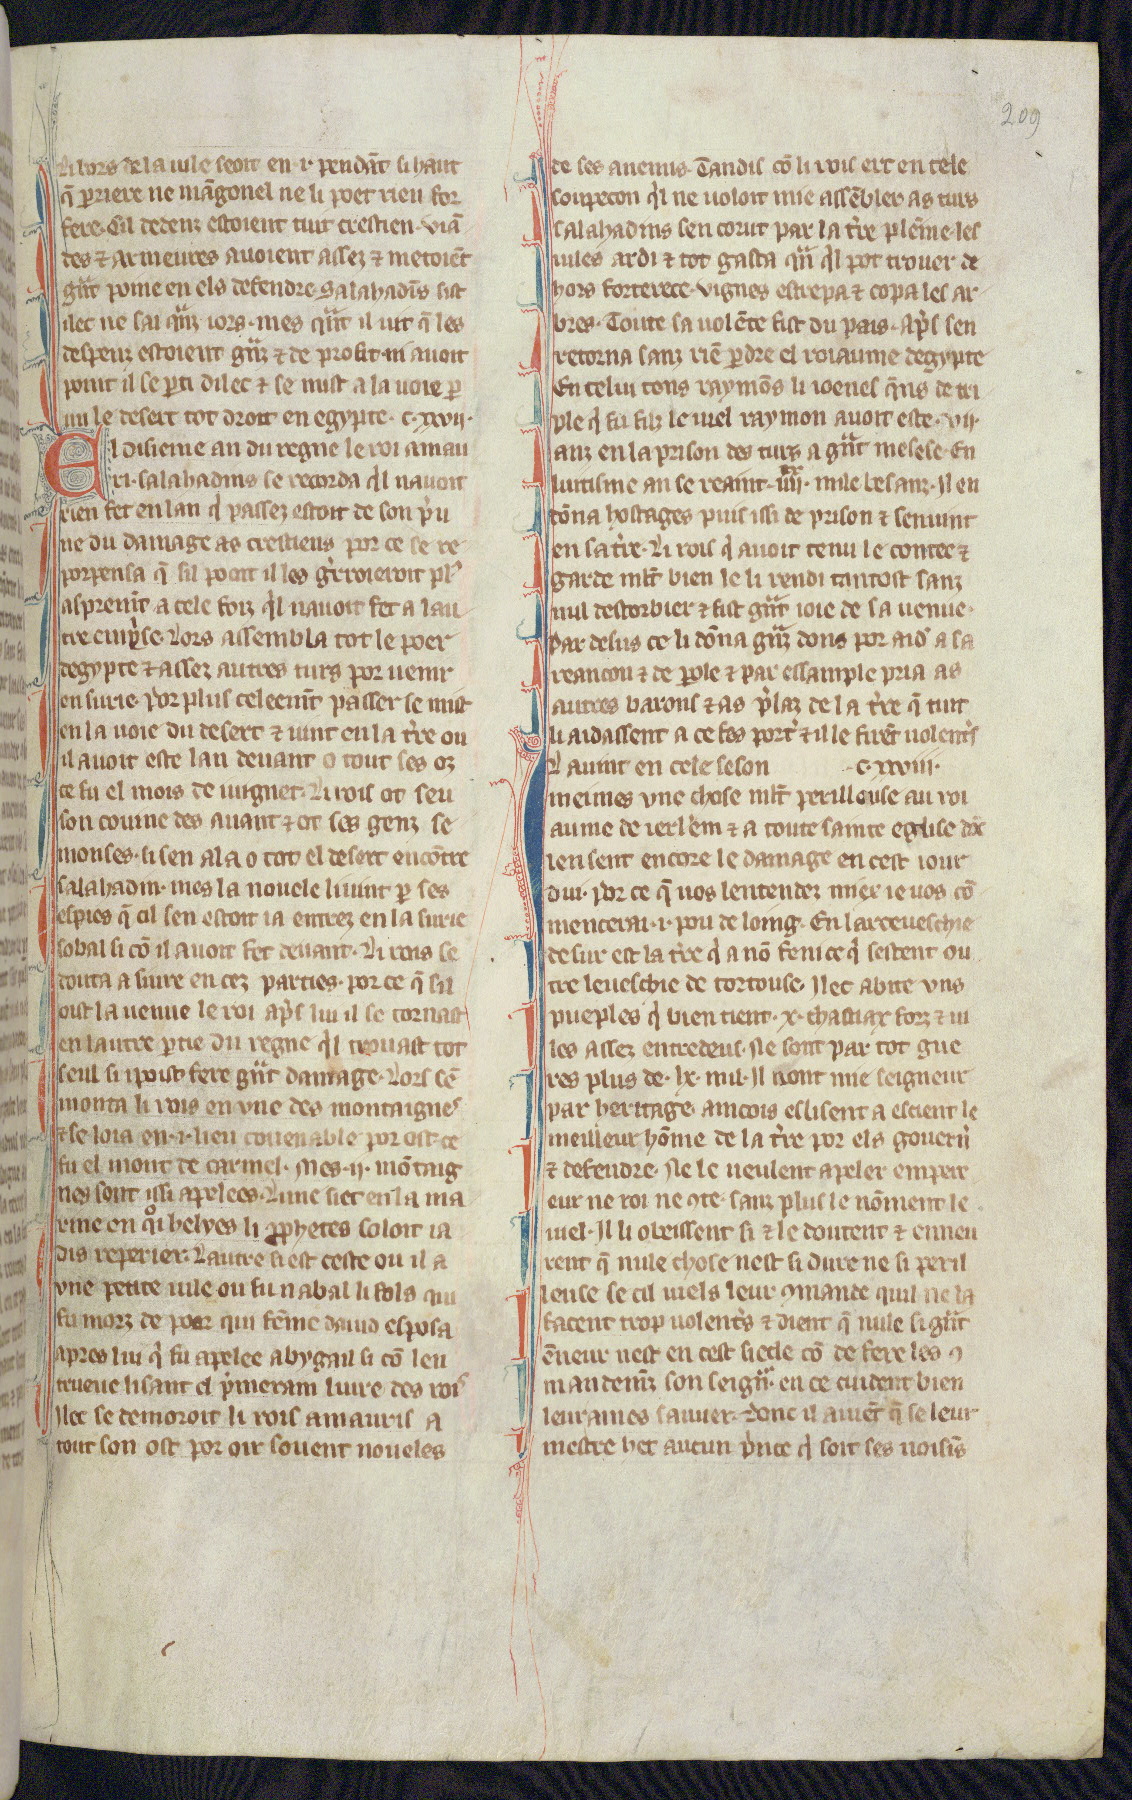 209
Li bors de la uile seoit en .i. pendāt si haut
q̄ pierere ne māgonel ne li poet rien for
fere. Cil dedenz estoient tuit crestien. viā
des ⁊ armeures auoient assez ⁊ metoiēt
gūt poine en els defendre. Salahadīs sist
ilec ne sai qūz iors. mes qūt il uit q̄ les
despenz estoient gūz ⁊ de profit ni auoit
point il se ꝑti dilec ⁊ se mist a la uoie ꝑ
mi le desert tot droit en egypte. c.xxvii.
El disieme an du regne le roi amau
ri. salahadins se recorda q̍l nauoit
rien fet en lan q̍ passez estoit de son p̍u
ne du damage as crestiens por ce se re
porpensa q̄ sil pooit il les gr̍roieroit pl᾽
asprem̄t a cele foiz q̍l nauoit fet a lau
tre emp̍se. Lors assembla tot le poer
degypte ⁊ assez autres turs por uenir
en surie. Por plus celeem̄t passer se mist
en la uoie du desert ⁊ uint en la t̄re ou
il auoit este lan deuant o tout ses oz
ce fu el mois de iuignet. Li rois ot seu
son couine des auant ⁊ ot ses genz se
monses. si sen ala o tot el desert encōtre
salahadin. mes la nouele li uint ꝑ ses
espies q̄ cil sen estoit ia entrez en la surie
sobal si cō il auoit fet deuant. Li rois se
douta a siure en cez parties. por ce q̄ sil
oist la uenue le roi ap̍s lui il se tornast
en lautre ꝑtie du regne q̍l trouast tot
seul si i poist fere gūt damage. Lors sē
monta li rois en vne des montaignes
⁊ se loia en .i. lieu couenable por ost ce
fu el mont de carmel. Mes .ii. mōtaig
nes sont issi apelees. Lune siet en la ma
rine en q̍i helyes li ꝓphetes soloit ia
dis reperier. Lautre si est ceste ou il a
vne petite uile ou fu nabal li fols qui
fu morz de poor qui fēme dauid esposa
apres lui q̍ fu apelee abygail si cō len
trueue lisant el p̍meram liure des rois
Ilec se demoroit li rois amauris a
tout son ost por oir souent noueles
de ses anemis. Tandis cō li rois ert en tele
soupecon q̍l ne uoloit mie assēbler as turs
salahadins sen corut par la t̄re pleīne les
uiles ardi ⁊ tot gasta qūq̍l pot trouer de
hors forterece. vignes estrepa ⁊ copa les ar
bres. Toute sa uolēte fist du pais. ap̍s sen
retorna sanz riē ꝑdre el roiaume degypte
En celui tens raymōs li ioenes q̄ns de tri
ple q̍ fu filz le uiel raymon auoit este .vii.
anz en la prison des turs a gūt mesese. En
luitisme an se reainst .iiii. mile besanz. Il en
dōna hostages puis issi de prison ⁊ sen uint
en sa t̄re. Li rois q̍ auoit tenu le contee ⁊
garde ml̄t bien le li rendi tantost sanz
nul destorbier ⁊ fist gūt ioie de sa uenue.
Par desus ce li dōna gūz dons por aid᾽ a sa
reancon ⁊ de ꝑole ⁊ par essample pria as
autres barons ⁊ as p̍laz de la t̄re q̄ tuit
li aidassent a ce fes port̄ ⁊ il le firēt uolent̍s
Lauint en cele seson c.xxviii.
meimes vne chose ml̄t perillouse au roi
aume de ierl̄em ⁊ a toute sainte eglise don
ien sent encore le damage en cest iour
dui. Por ce q̄ uos lentendez miex ie uos cō
mencerai .i. pou de loing. En larceueschie
de sur est la t̄re q̍ a nō fenice q̍ sestent ou
tre leueschie de tortouse. Ilec abite vns
pueples q̍ bien tient .x. chastiax forz ⁊ ui
les assez entredeus. Ne sont par tot gue
res plus de .lx. mil. Il nont mie seigneur
par heritage. aincois eslisent a escient le
meilleur hōme de la t̄re por els gouern̄
⁊ defendre. Ne le ueulent apeler emper
eur ne roi ne ꝯte. sanz plus le nōment le
uiel. Il li obeissent si ⁊ le doutent ⁊ enneu
rent q̄ nule chose nest si dure ne si peril
leuse se cil uiels leur ꝯmande quil ne la
facent trop uolent̍s ⁊ dient q̄ nule si gūt
ēneur nest en cest siecle cō de fere les ꝯ
mandem̄z son seigū᾽. en ce cuident bien
leur ames sauuer. Donc il auiēt q̄ se leur
mestre het aucun p̍nce q̍ soit ses uoisīs